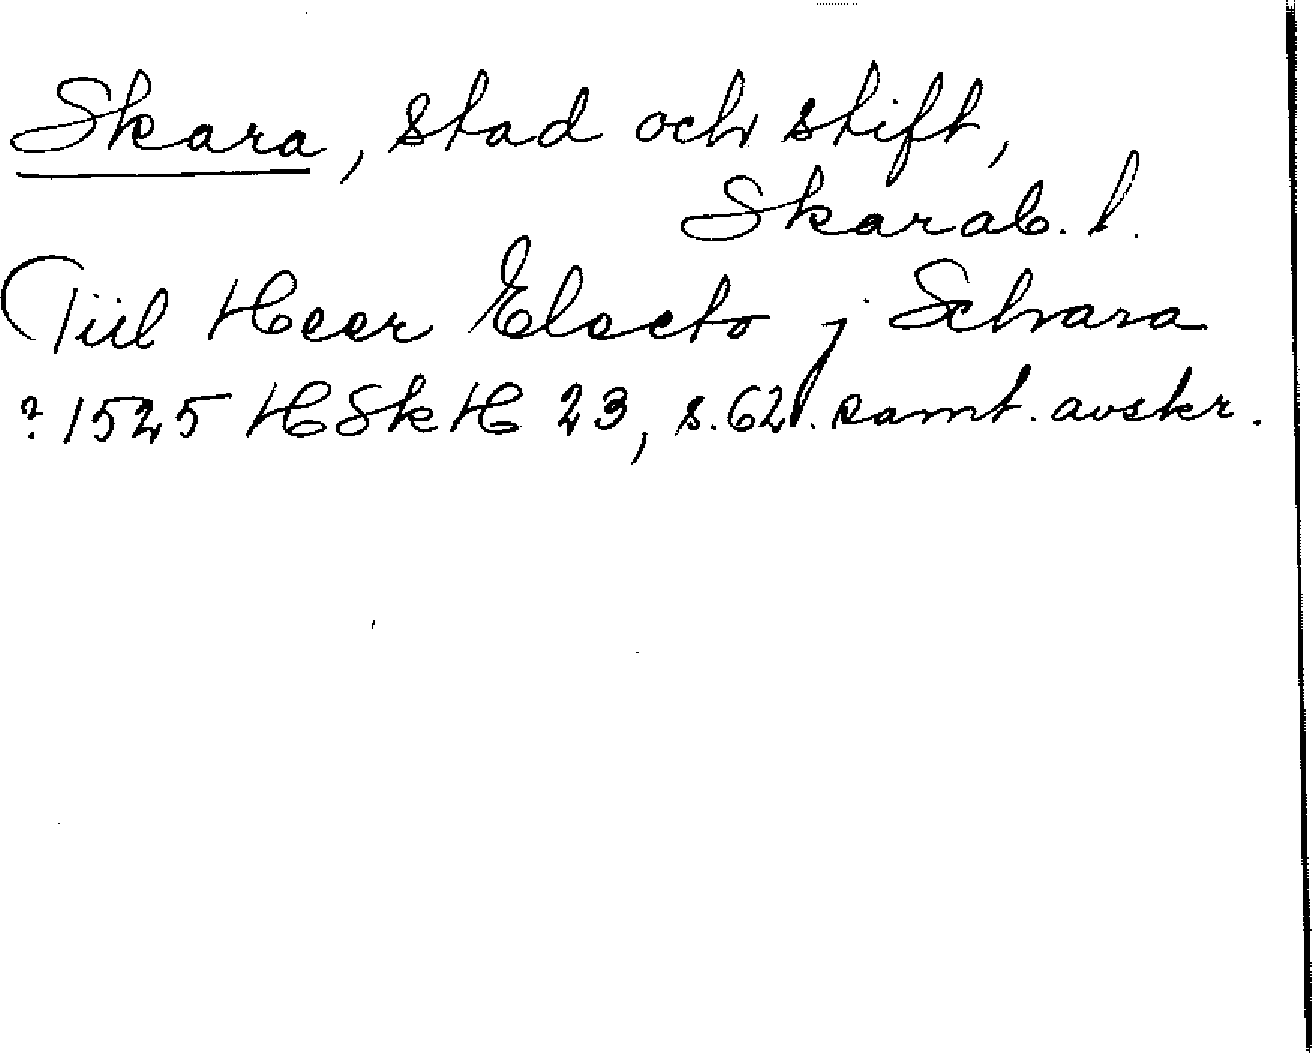 Skara, stad och stift,
Skarab. l.
Tiil Heer Electo j Schara
? 1525 HSkH 23, s. 62 f. samt. avskr.